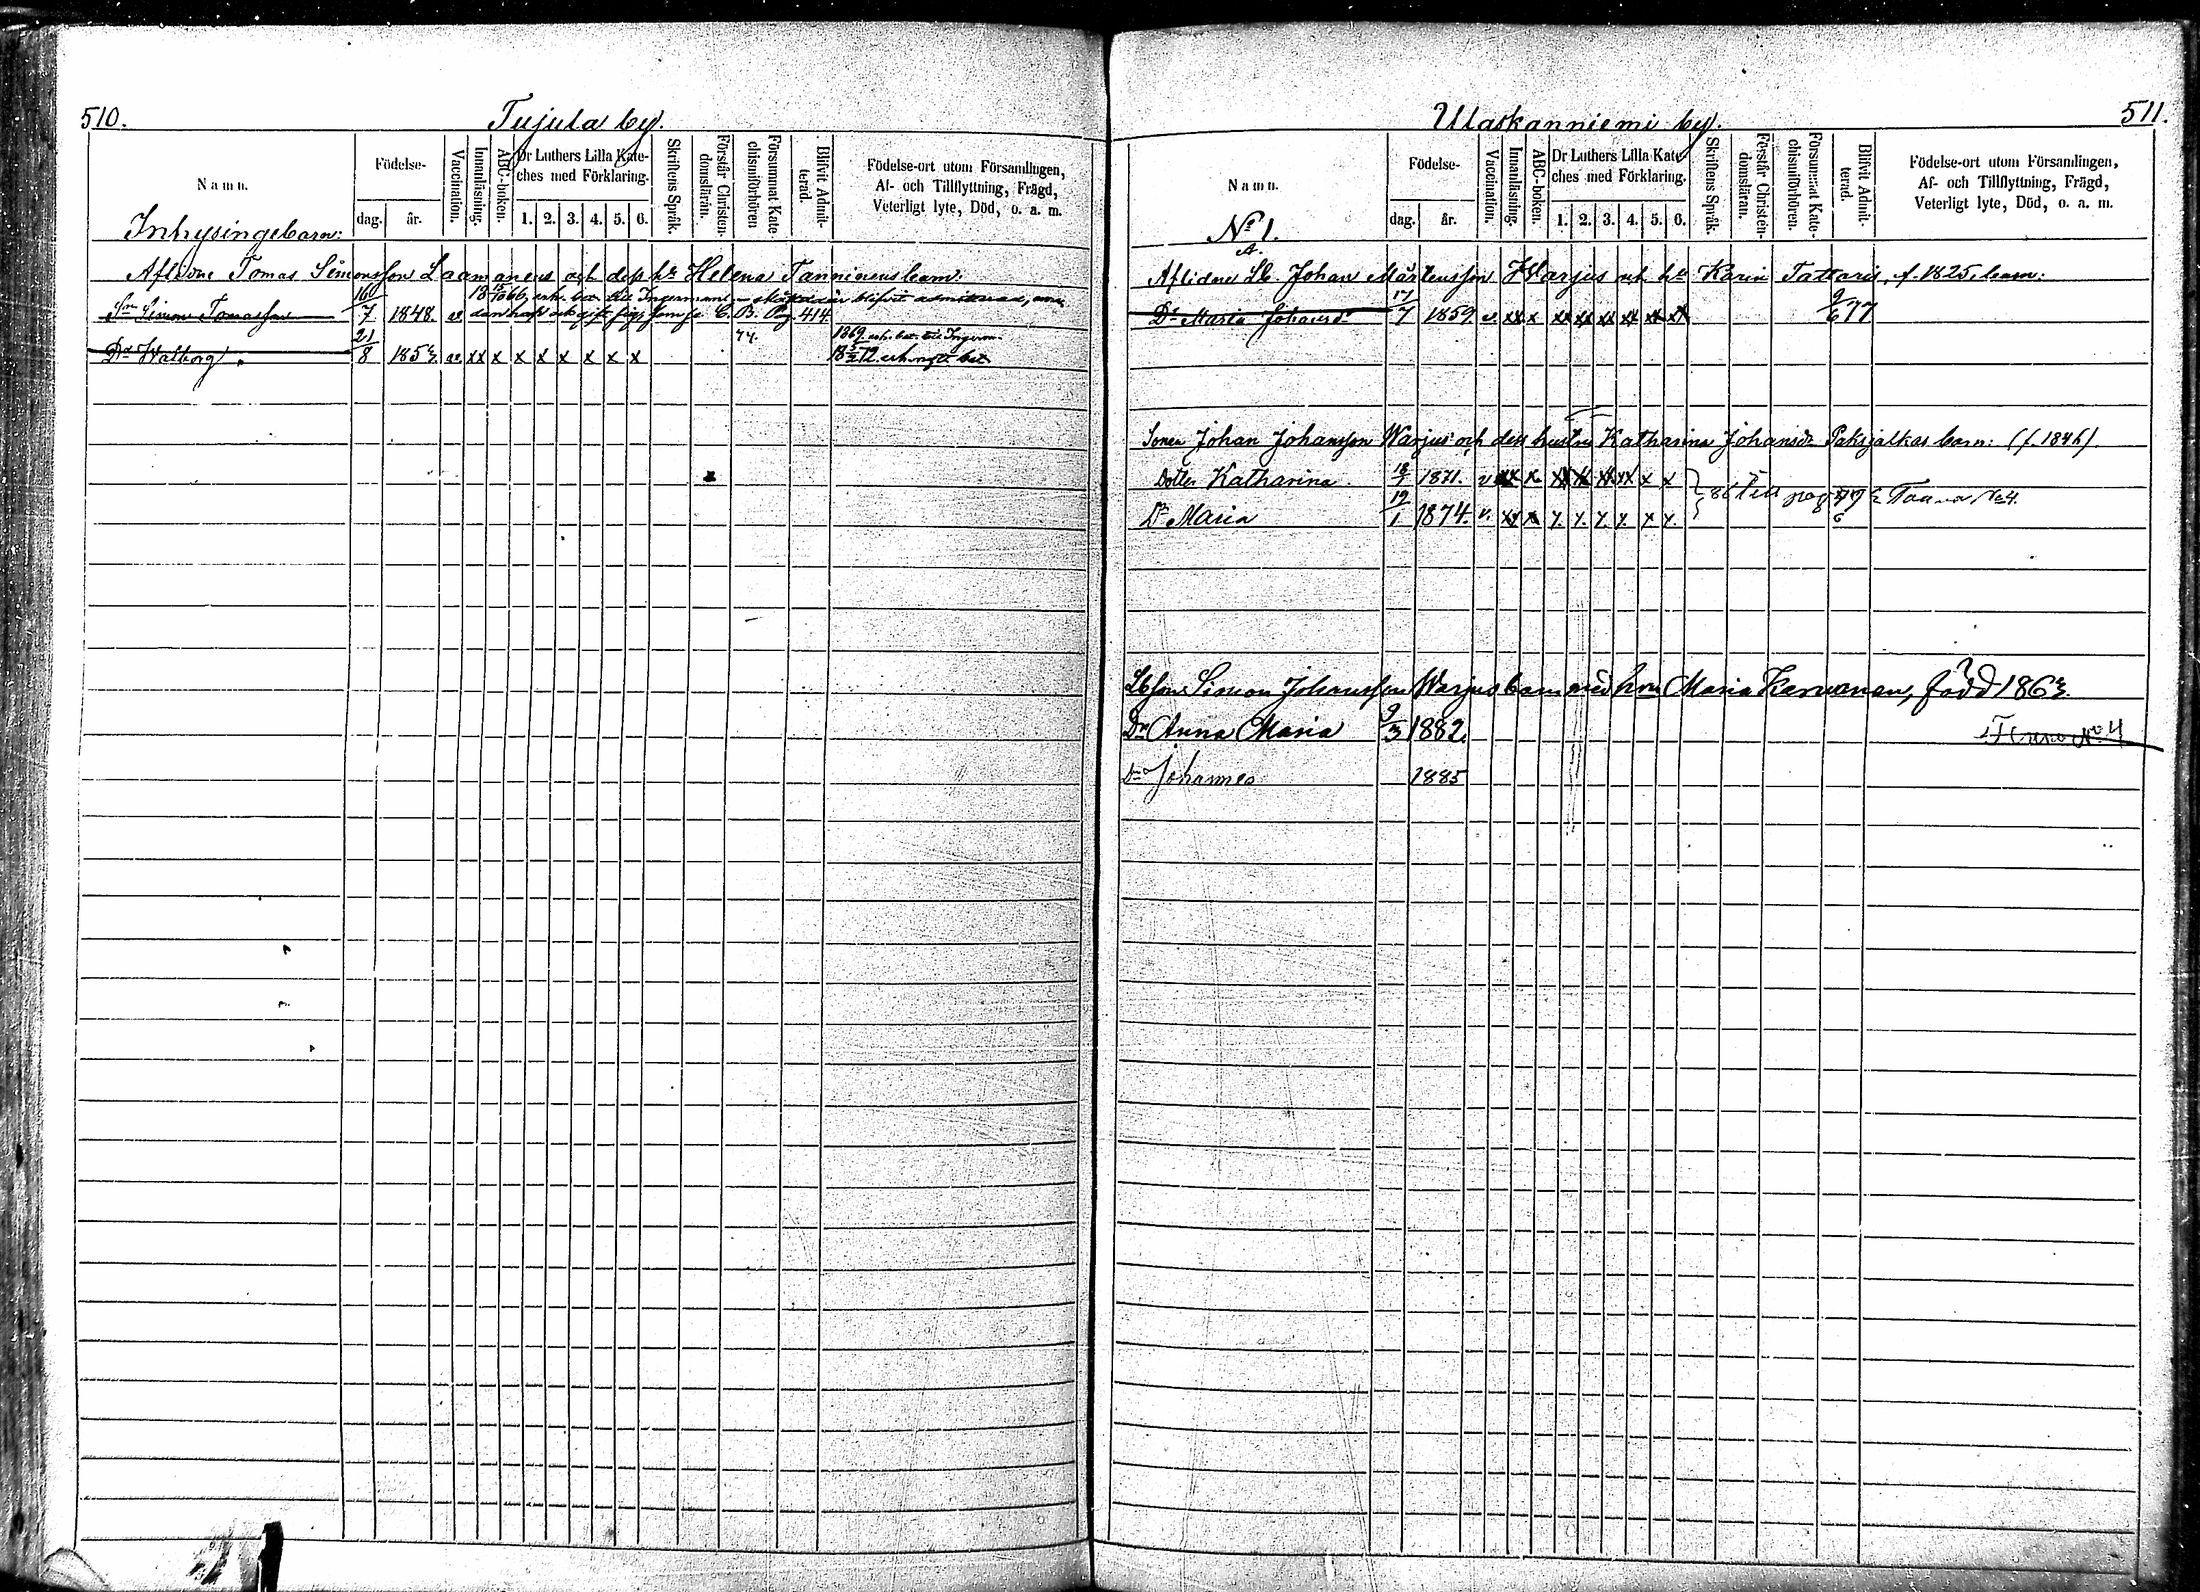 510.
Tujula by.
Namn.
Födelse-
dag.
år.
Vaccination.
Innanläsning.
ABC-boken.
Dr Luthers Lilla Kate-
ches med Förklaring.
1. 2. 3. 4. 5. 6.
Skriftens Språk.
Förstår Christen-
domsläran.
Försummat Kate-
chismiförhören
Blifvit Admit-
terad.
Födelse-ort utom Församlingen,
Af- och Tillflyttning, Frägd,
Veterligt lyte, Död, o. a. m.
Inhysingebarn:
Aflidne Tomas Simonsson Laamanens och dess h:u Helena Tanninens barn:
Sn Simon Tomasson 16/7 1848. C. B. Pag 414
Dr Walborg 21/8 185 xx x x x x x x x 77.
1869 erh. bet. till Ingerm.
72 erh. nytt bet.
511.
Ulaskanniemi by.
Namn.
Födelse-
dag.
år.
Vaccination.
Innanläsning.
ABC-boken.
Dr Luthers Lilla Kate-
ches med Förklaring.
1. 2. 3. 4. 5. 6.
Skriftens Språk.
Förstår Christen-
domsläran.
Försummat Kate-
chismiförhören.
Blifvit Admit-
terad.
Födelse-ort utom Församlingen,
Af- och Tillflyttning, Frägd,
Veterligt lyte, Död, o. a. m.
No 1.
A.
Aflidne Lb. Johan Mårtensson Warjus och h:u Karin Tattaris, f. 1825, barn:
Dr Maria Johansdr 17/7 1859 v. xx x xx xx xx xx xx xx 9/6 77
Sonen Johan Johansson Warjus och dess hustru Katharina Johansdr Paksjalkas barn: (f. 1846)
Dotter Katharina. 18/ 1871. v xx x xx xx xx xx x x
86 Till pag Tauna No 4.
Dr Maria 19/1 1874. v. xx x x x x x x x
Lbson Simon Johansson Warjus barn med hu Maria Karvanen, född 186
Dr Anna Maria 9/3 1882.
No 4
Johannes 1885